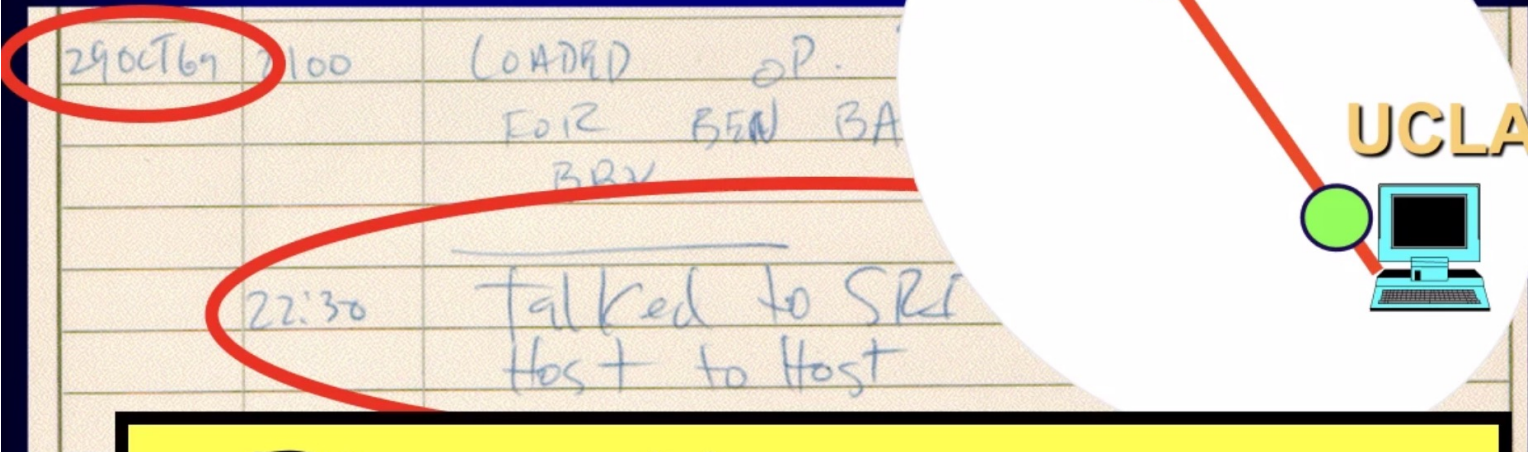 29OCT69 2100 LOADED OP.
FOR BEN BA
BBN
22:30 Talked to SRI
Host to Host
UCLA